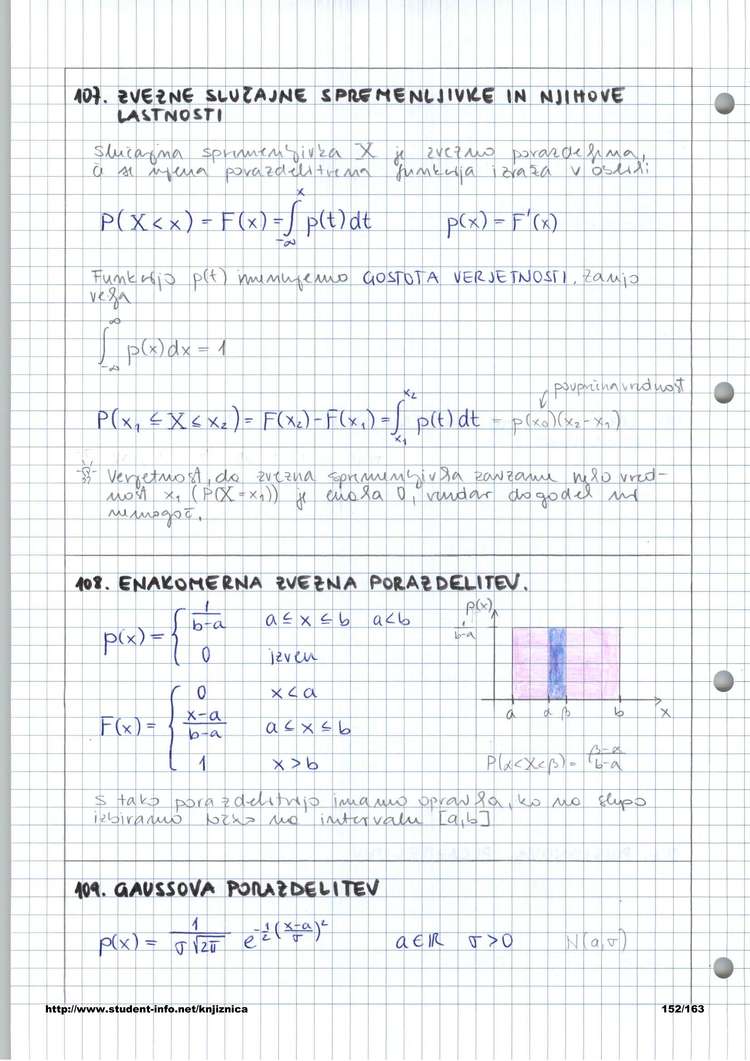 107. ZVEZNE SLUČAJNE SPREMENLJIVKE IN NJIHOVE
LASTNOSTI
Slučajna spremenljivka X je zvezno porazdeljena,
če se njena porazdelitvena funkcija izraža v obliki
P(X < x) = F(x) = ∫_{-∞}^{x} p(t) dt p(x) = F'(x)
Funkcijo p(t) imenujemo GOSTOTA VERJETNOSTI. Zanjo
velja
∫_{-∞}^{∞} p(x) dx = 1
povprečna vrednost
P(x₁ ≤ X ≤ x₂) = F(x₂) - F(x₁) = ∫_{x₁}^{x₂} p(t) dt = p(x₀)(x₂ - x₁)
Verjetnost, da zvezna spremenljivka zavzame neko vred-
nost x₁ (P(X = x₁)) je enaka 0, vendar dogodek ni
nemogoč.
108. ENAKOMERNA ZVEZNA PORAZDELITEV.
p(x) = { 1/(b-a) a ≤ x ≤ b a < b
0 izven
p(x)
1/(b-a)
a α β b x
F(x) = { 0 x < a
(x-a)/(b-a) a ≤ x ≤ b
1 x > b
P(α < X < β) = (β-α)/(b-a)
S tako porazdelitvijo imamo opravka, ko na slepo
izbiramo točko na intervalu [a,b]
109. GAUSSOVA PORAZDELITEV
p(x) = 1/(σ√2π) e^{-1/2((x-a)/σ)²} a ∈ ℝ σ > 0 N(a,σ)
http://www.student-info.net/knjiznica 152/163